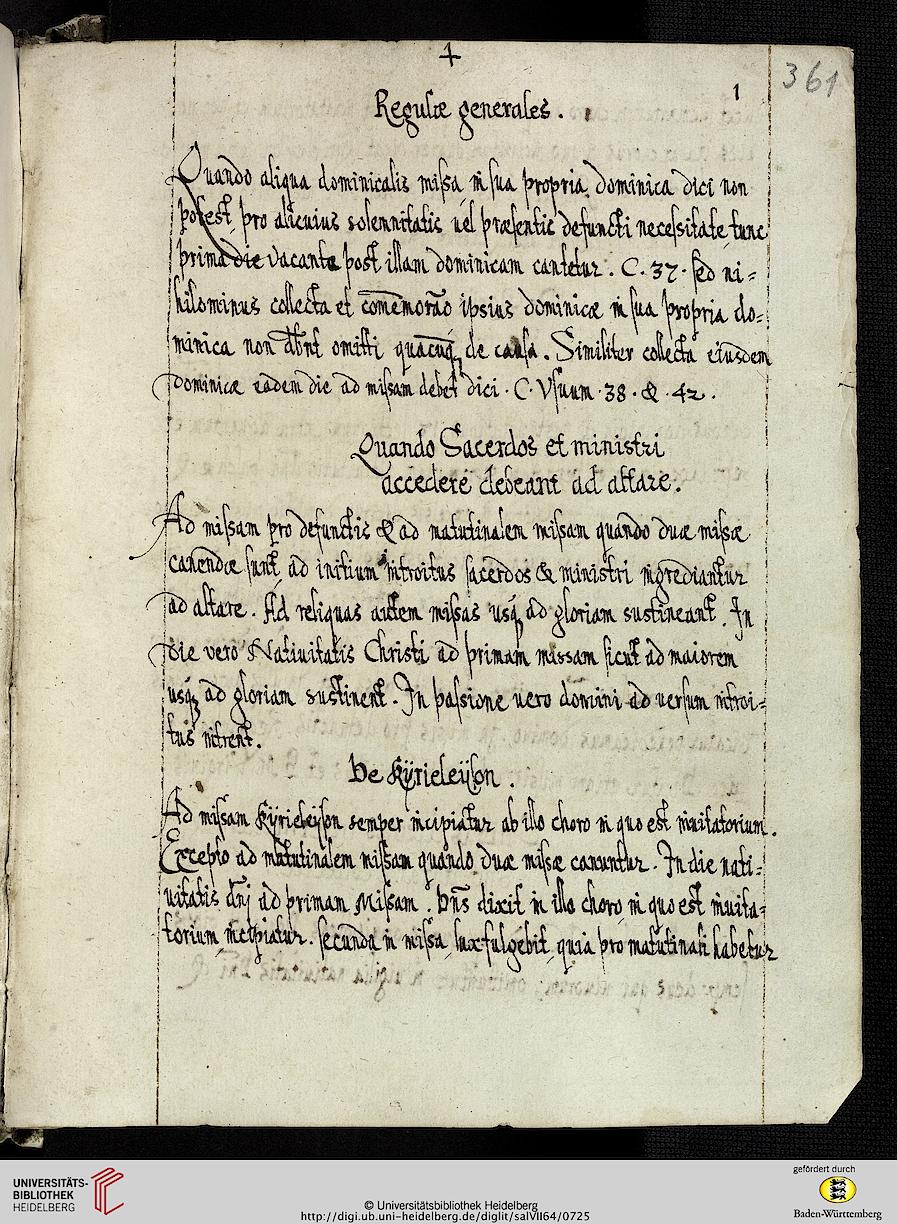 +
361
1
Regulæ generales .
Quando aliqua dominicalis missa in sua propria dominica dici non
potest, pro alicuius solennitatis uel præsentis defuncti necessitate, tunc
prima die vacante post illam dominicam cantetur . C. 37 . sed ni=
hilominus collecta et comemorão ipsius dominicæ in sua propria do=
minica non dbnt omitti quacuq, de causa . Similiter collecta eiusdem
dominicæ eadem die ad missam debet dici . C. Vsuum . 38 . & . 42 .
Quando Sacerdos et ministri
accedere debeant ad altare .
Ad missam pro defunctis & ad matutinalem missam quando duæ missæ
canendæ sunt, ad initium introitus sacerdos & ministri ingrediantur
ad altare . Ad reliquas autem missas usq, ad gloriam sustineant . In
die vero Natiuitatis Christi ad primam missam sicut ad maiorem
usq, ad gloriam sustinent . In passione uero domini ad uersum introi=
tus intrent .
De Kÿrieleÿson .
Ad missam Kÿrieleÿson semper incipiatur ab illo choro in quo est inuitatorium .
Excepto ad matutinalem missam quando duæ missæ canuntur . In die nati=
uitatis dnj ad primam Missam . Dns dixit in illo choro, in quo est inuita=
torium, incipiatur . secunda in missa, lux fulgebit, quia pro matutinali habetur
UNIVERSITÄTS-
BIBLIOTHEK
HEIDELBERG
© Universitätsbibliothek Heidelberg
http://digi.ub.uni-heidelberg.de/diglit/salVII64/0725
gefördert durch
Baden-Württemberg